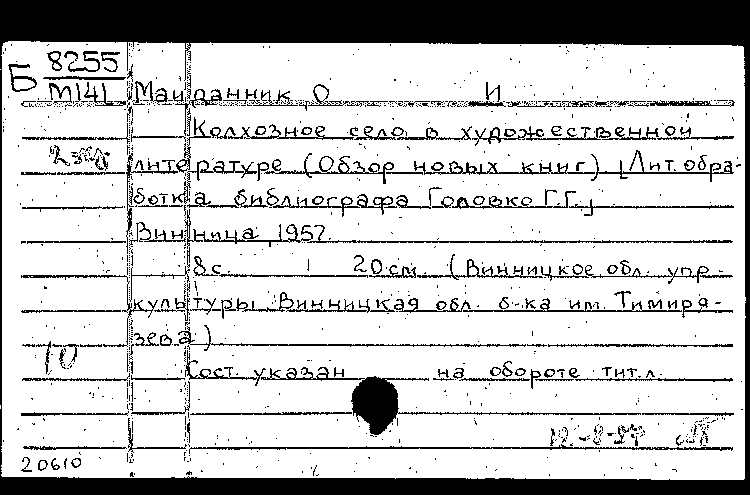 Б 8255
М141 Майданник, О И
Колхозное село в художественной
2 экз литературе (Обзор новых книг) [Лит. обра-
ботка библиографа Головко Г.Г.]
Винница, 1957.
8 с. 20 см. (Винницкое обл. упр.
культуры. Винницкая обл. б-ка им. Тимиря-
зева)
10
Сост. указан на обороте тит. л.
20610